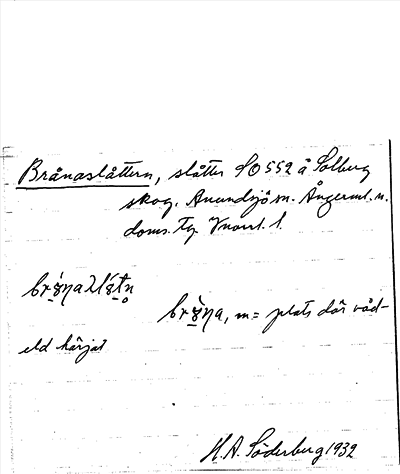 Brånaslåttern, slåtter SO 552 å Solberg
skog. Anundsjö sn. Ångerml. n.
doms. tg Vnorrl. l.
brɷ̀na, m = plats där våd-
eld härjat
H. A. Söderberg 1932